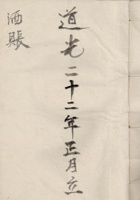 道光二十二年正月立
酒賬